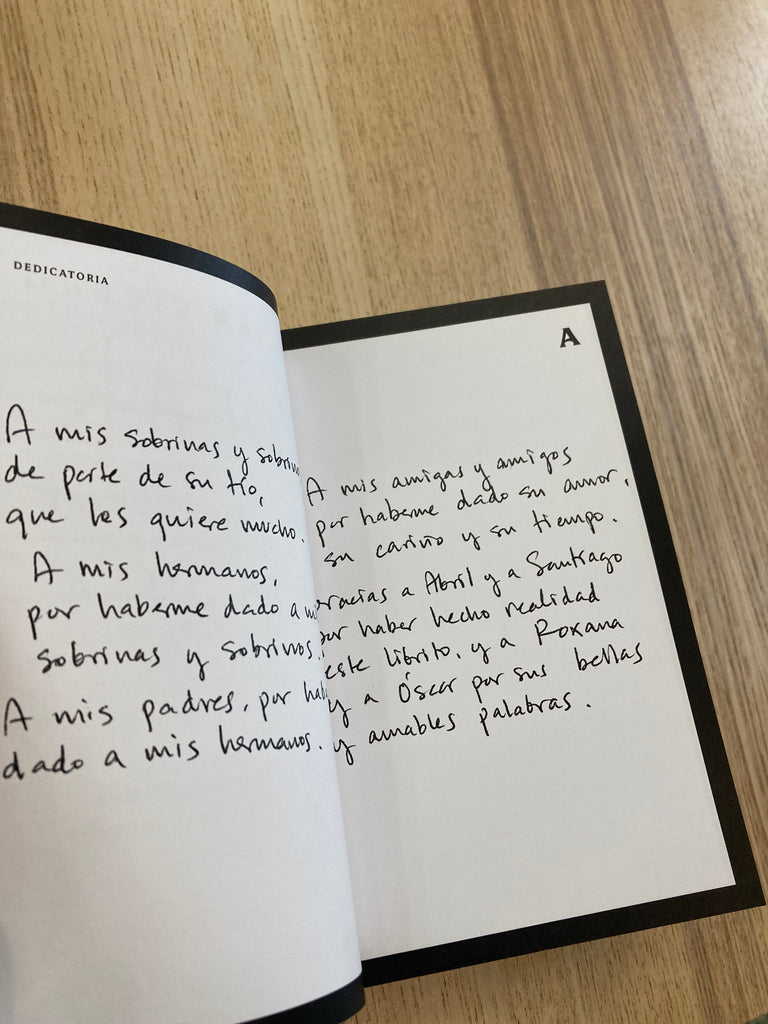 DEDICATORIA
A mis sobrinas y sobrin
de parte de su tío,
que les quiere mucho.
A mis hermanos,
por haberme dado a m
sobrinas y sobrinos.
A mis padres, por hab
dado a mis hermanos.
A
A mis amigas y amigos
por haberme dado su amor,
su cariño y su tiempo.
gracias a Abril y a Santiago
por haber hecho realidad
este librito, y a Roxana
y a Óscar por sus bellas
y amables palabras.